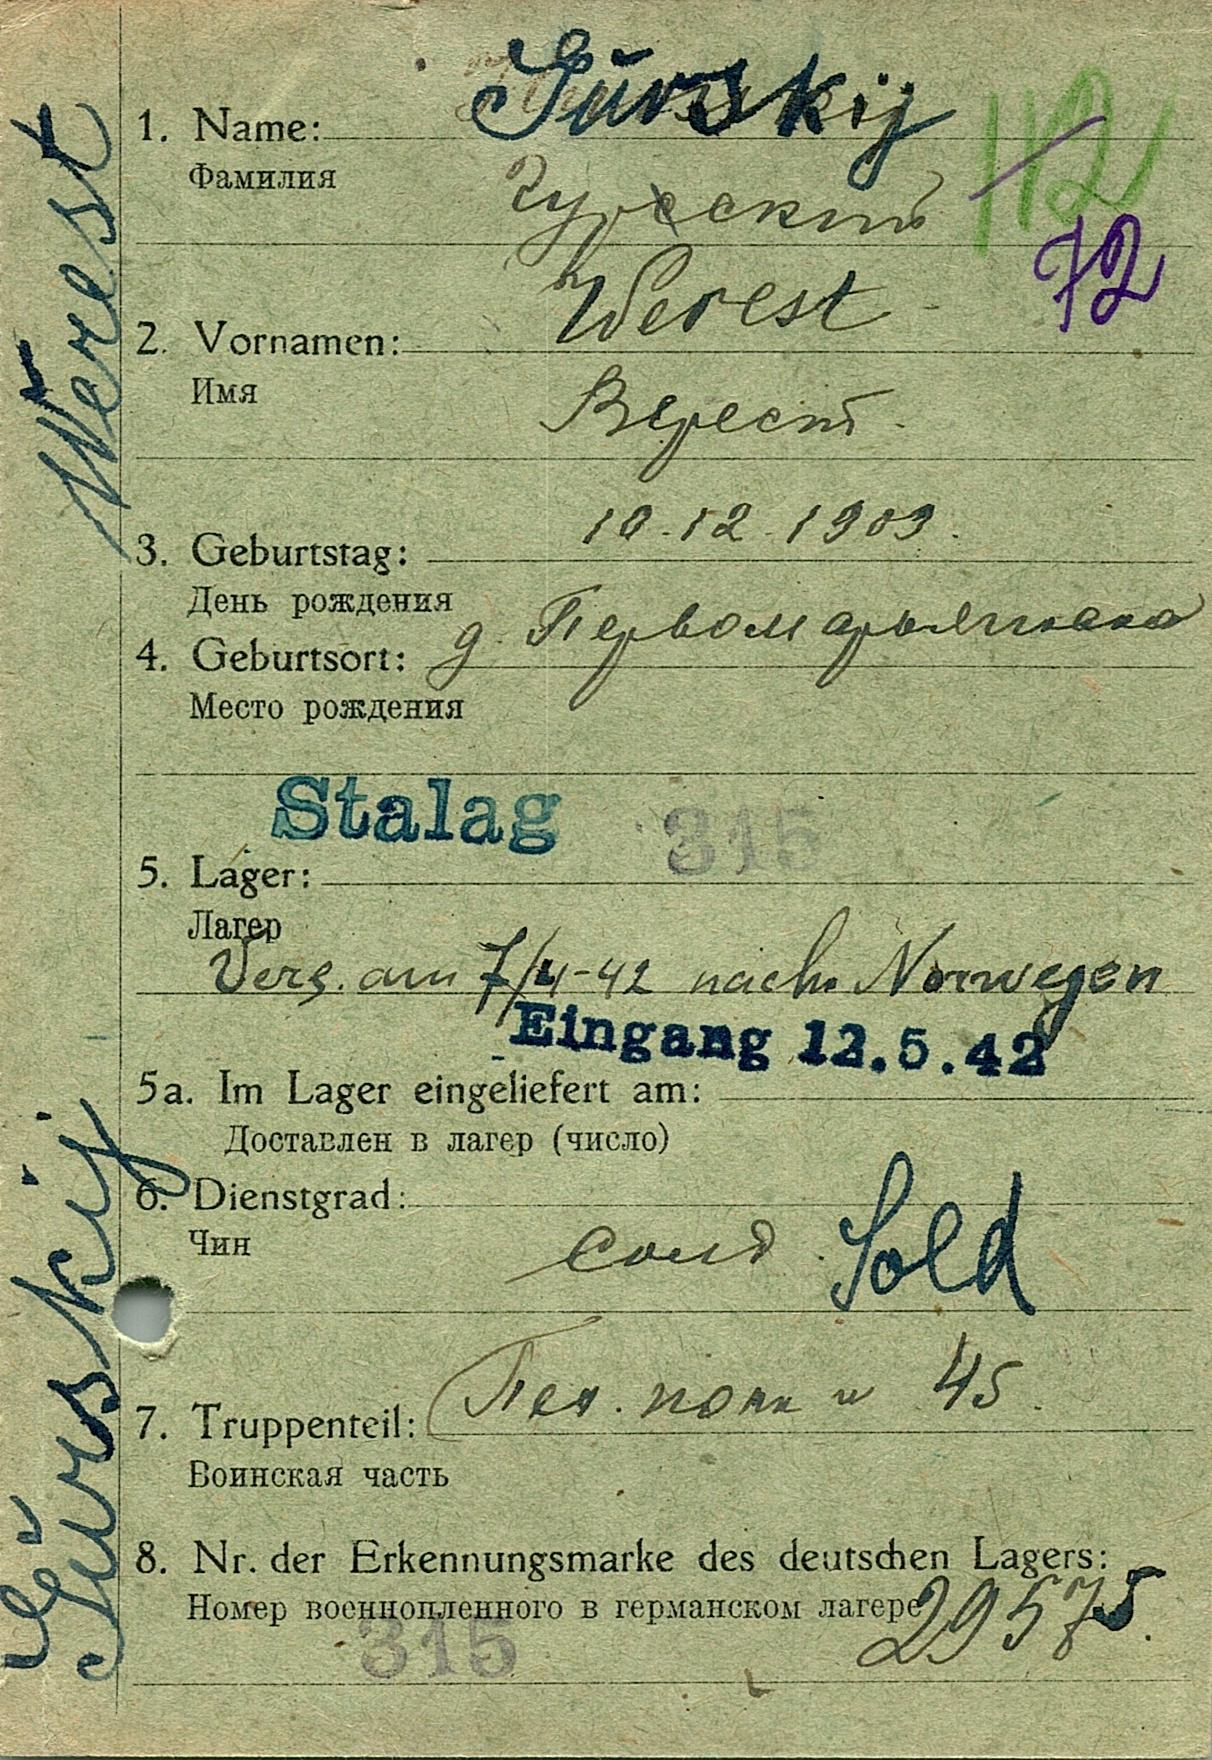 Werest
Gurskij
1. Name: Gurskij
Фамилия
Гурский
112
72
Werest
2. Vornamen:
Имя
Верест
10.12.1909.
3. Geburtstag:
День рождения
4. Geburtsort: д.
Место рождения
Stalag 315
5. Lager:
Лагер
Vers. am 7/4-42 nach Norwegen
Eingang 12.5.42
5a. Im Lager eingeliefert am:
Доставлен в лагер (число)
6. Dienstgrad:
Чин
солд. Sold
7. Truppenteil: полк 45.
Воинская часть
8. Nr. der Erkennungsmarke des deutschen Lagers:
Номер военнопленного в германском лагере 29575.
315